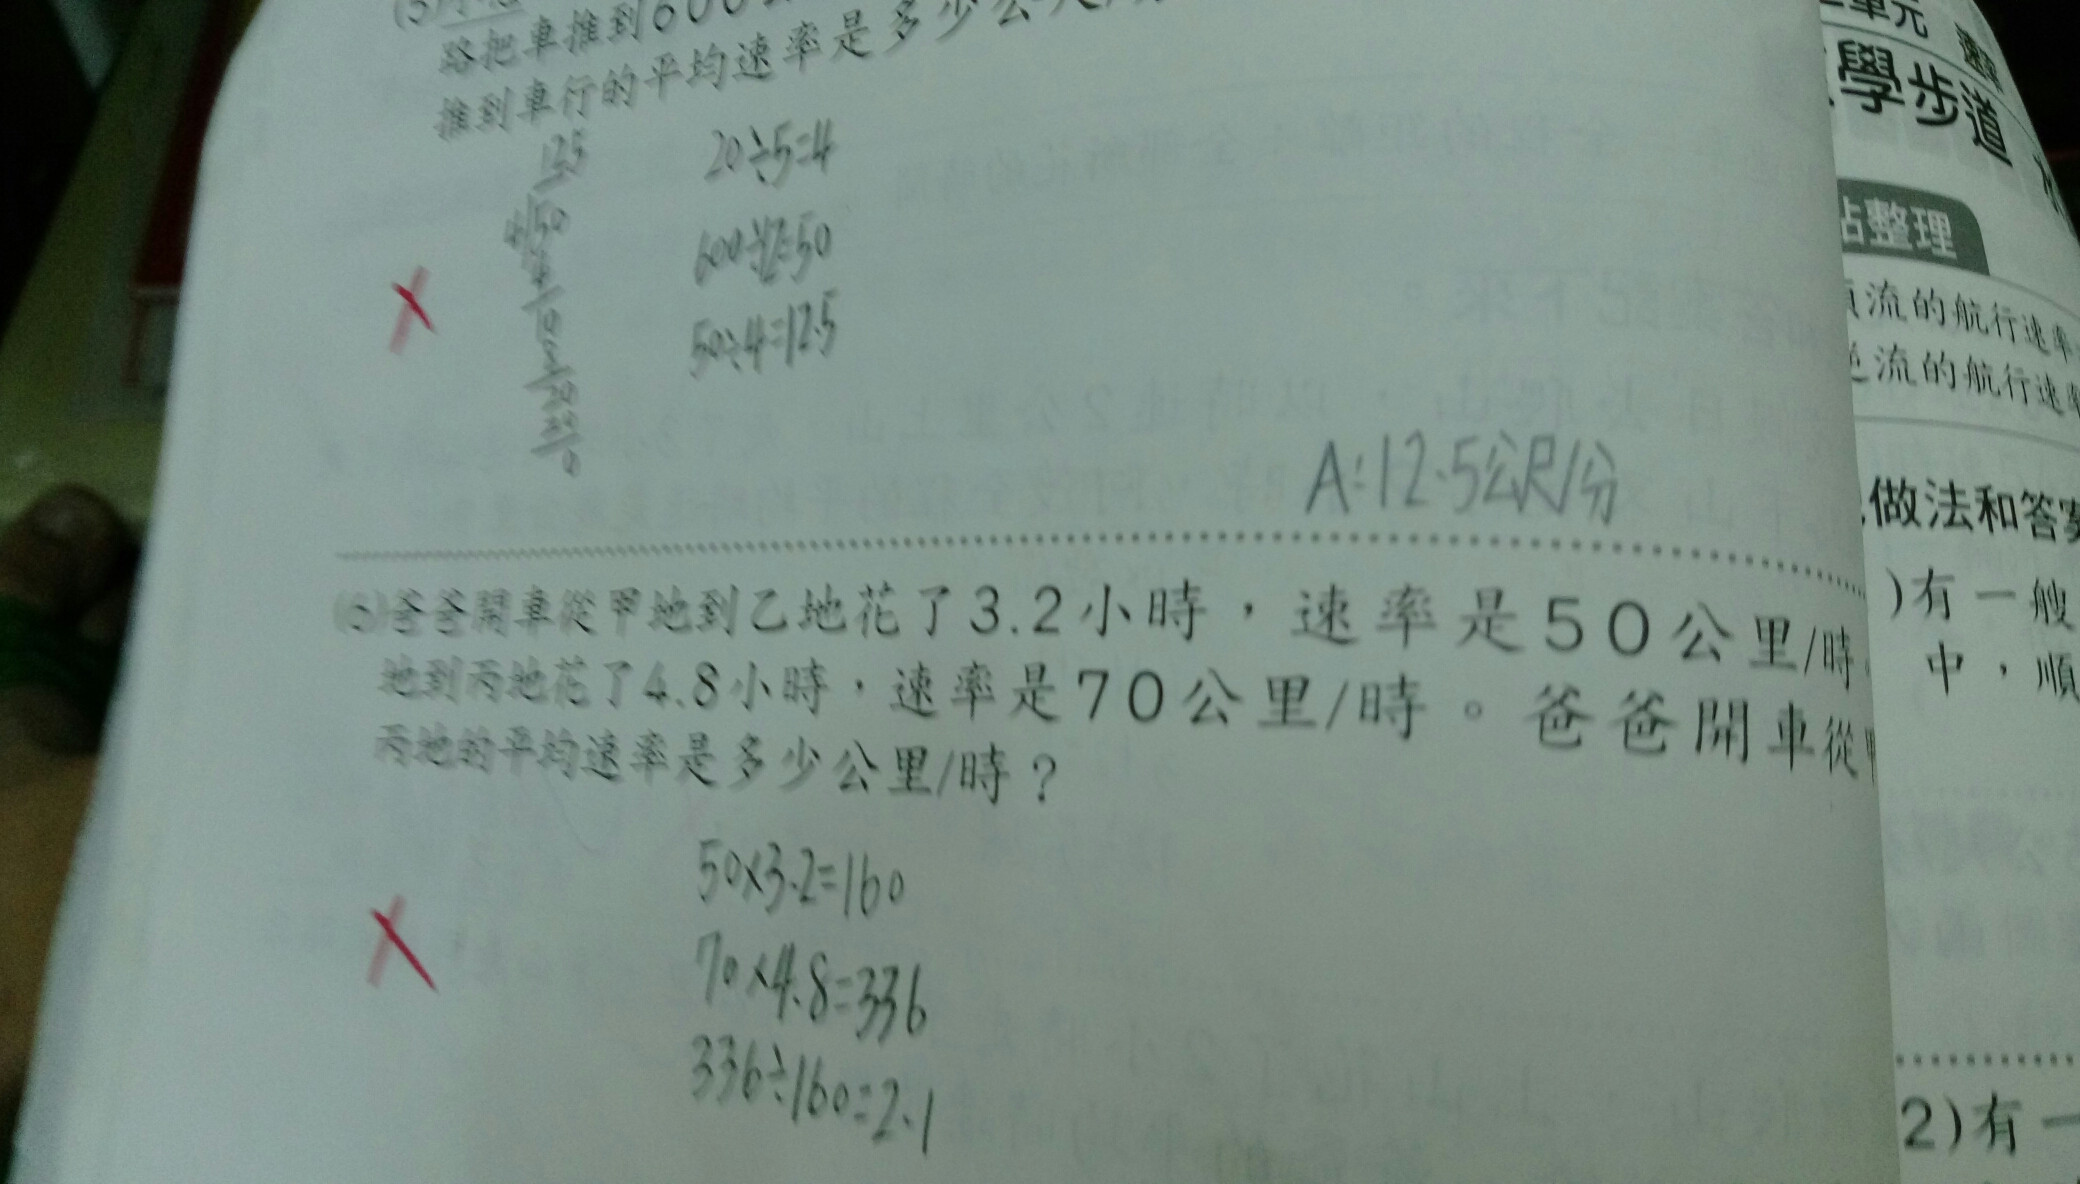 路把車推到600
推到車行的平均速率是多少公尺/分
12.5
20÷5=4
4 50
600÷12=50
4
10
50÷4=12.5
8
20
20
0
A:12.5公尺/分
(6)爸爸開車從甲地到乙地花了3.2小時,速率是50公里/時。
地到丙地花了4.8小時,速率是70公里/時。爸爸開車從甲
丙地的平均速率是多少公里/時?
50×3.2=160
70×4.8=336
336÷160=2.1
單元
學步道
整理
流的航行速率
逆流的航行速率
做法和答案
)有一艘
中,順
2)有一